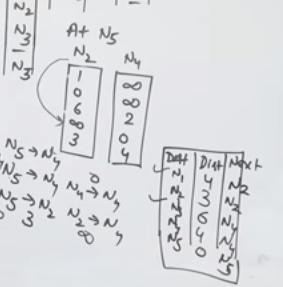 N2
N3
-
N3
At N5
N2 N4
1 ∞
0 ∞
6 2
∞ 0
3 4
N5 → N4
N5 → N4 N4 → N4
N5 → N2 N2 → N4
3 ∞
Dest Dist Next
N1 4 N2
N2 3 N2
N3 6 N4
N4 4 N4
N5 0 N5